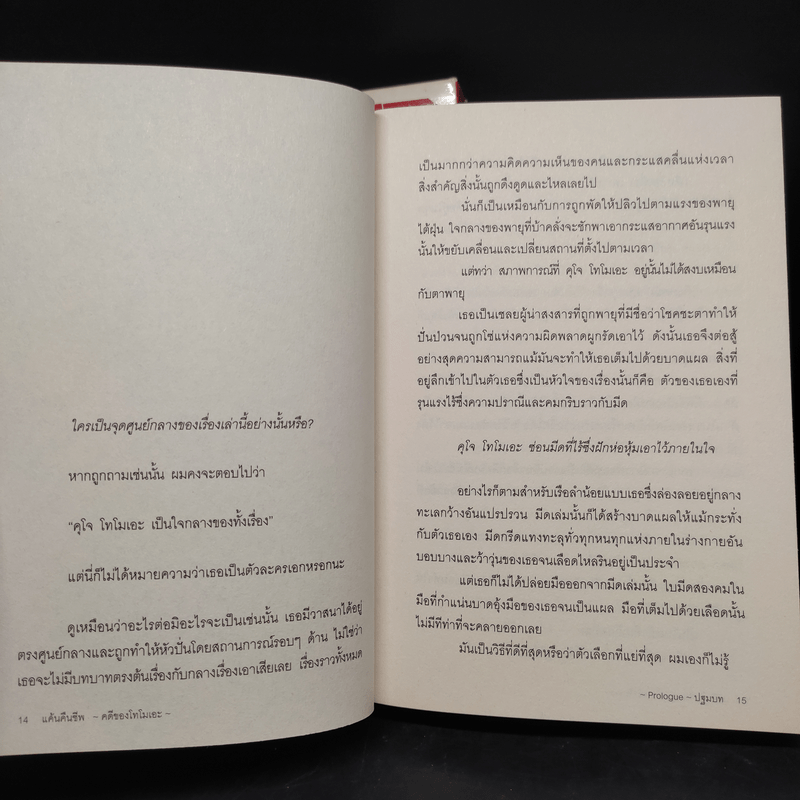 ใครเป็นจุดศูนย์กลางของเรื่องเล่านี้อย่างนั้นหรือ?
หากถูกถามเช่นนั้น ผมคงจะตอบไปว่า
“คุโจ โทโมเอะ เป็นใจกลางของทั้งเรื่อง”
แต่นี่ก็ไม่ได้หมายความว่าเธอเป็นตัวละครเอกหรอกนะ
ดูเหมือนว่าอะไรต่อมิอะไรจะเป็นเช่นนั้น เธอมีวาสนาได้อยู่
ตรงศูนย์กลางและถูกทำให้หัวปั่นโดยสถานการณ์รอบๆ ด้าน ไม่ใช่ว่า
เธอจะไม่มีบทบาทตรงต้นเรื่องกับกลางเรื่องเอาเสียเลย เรื่องราวทั้งหมด
14 แค้นคืนชีพ ~คดีของโทโมเอะ~
เป็นมากกว่าความคิดความเห็นของคนและกระแสคลื่นแห่งเวลา
สิ่งสำคัญสิ่งนั้นถูกดึงดูดและไหลเลยไป
นั่นก็เป็นเหมือนกับการถูกพัดให้ปลิวไปตามแรงของพายุ
ไต้ฝุ่น ใจกลางของพายุที่บ้าคลั่งจะชักพาเอากระแสอากาศอันรุนแรง
นั้นให้ขยับเคลื่อนและเปลี่ยนสถานที่ตั้งไปตามเวลา
แต่ทว่า สภาพการณ์ที่ คุโจ โทโมเอะ อยู่นั้นไม่ได้สงบเหมือน
กับตาพายุ
เธอเป็นเชลยผู้น่าสงสารที่ถูกพายุที่มีชื่อว่าโชคชะตาทำให้
ปั่นป่วนจนถูกโซ่แห่งความผิดพลาดผูกรัดเอาไว้ ดังนั้นเธอจึงต่อสู้
อย่างสุดความสามารถแม้มันจะทำให้เธอเต็มไปด้วยบาดแผล สิ่งที่
อยู่ลึกเข้าไปในตัวเธอซึ่งเป็นหัวใจของเรื่องนั้นก็คือ ตัวของเธอเองที่
รุนแรงไร้ซึ่งความปรานีและคมกริบราวกับมีด
คุโจ โทโมเอะ ซ่อนมีดที่ไร้ซึ่งฝักห่อหุ้มเอาไว้ภายในใจ
อย่างไรก็ตามสำหรับเรือลำน้อยแบบเธอซึ่งล่องลอยอยู่กลาง
ทะเลกว้างอันแปรปรวน มีดเล่มนั้นก็ได้สร้างบาดแผลให้แม้กระทั่ง
กับตัวเธอเอง มีดกรีดแทงทะลุทั่วทุกหนทุกแห่งภายในร่างกายอัน
บอบบางและว้าวุ่นของเธอจนเลือดไหลรินอยู่เป็นประจำ
แต่เธอก็ไม่ได้ปล่อยมือออกจากมีดเล่มนั้น ใบมีดสองคมใน
มือที่กำแน่นบาดอุ้งมือของเธอจนเป็นแผล มือที่เต็มไปด้วยเลือดนั้น
ไม่มีทีท่าที่จะคลายออกเลย
มันเป็นวิธีที่ดีที่สุดหรือว่าตัวเลือกที่แย่ที่สุด ผมเองก็ไม่รู้
~Prologue~ ปฐมบท 15